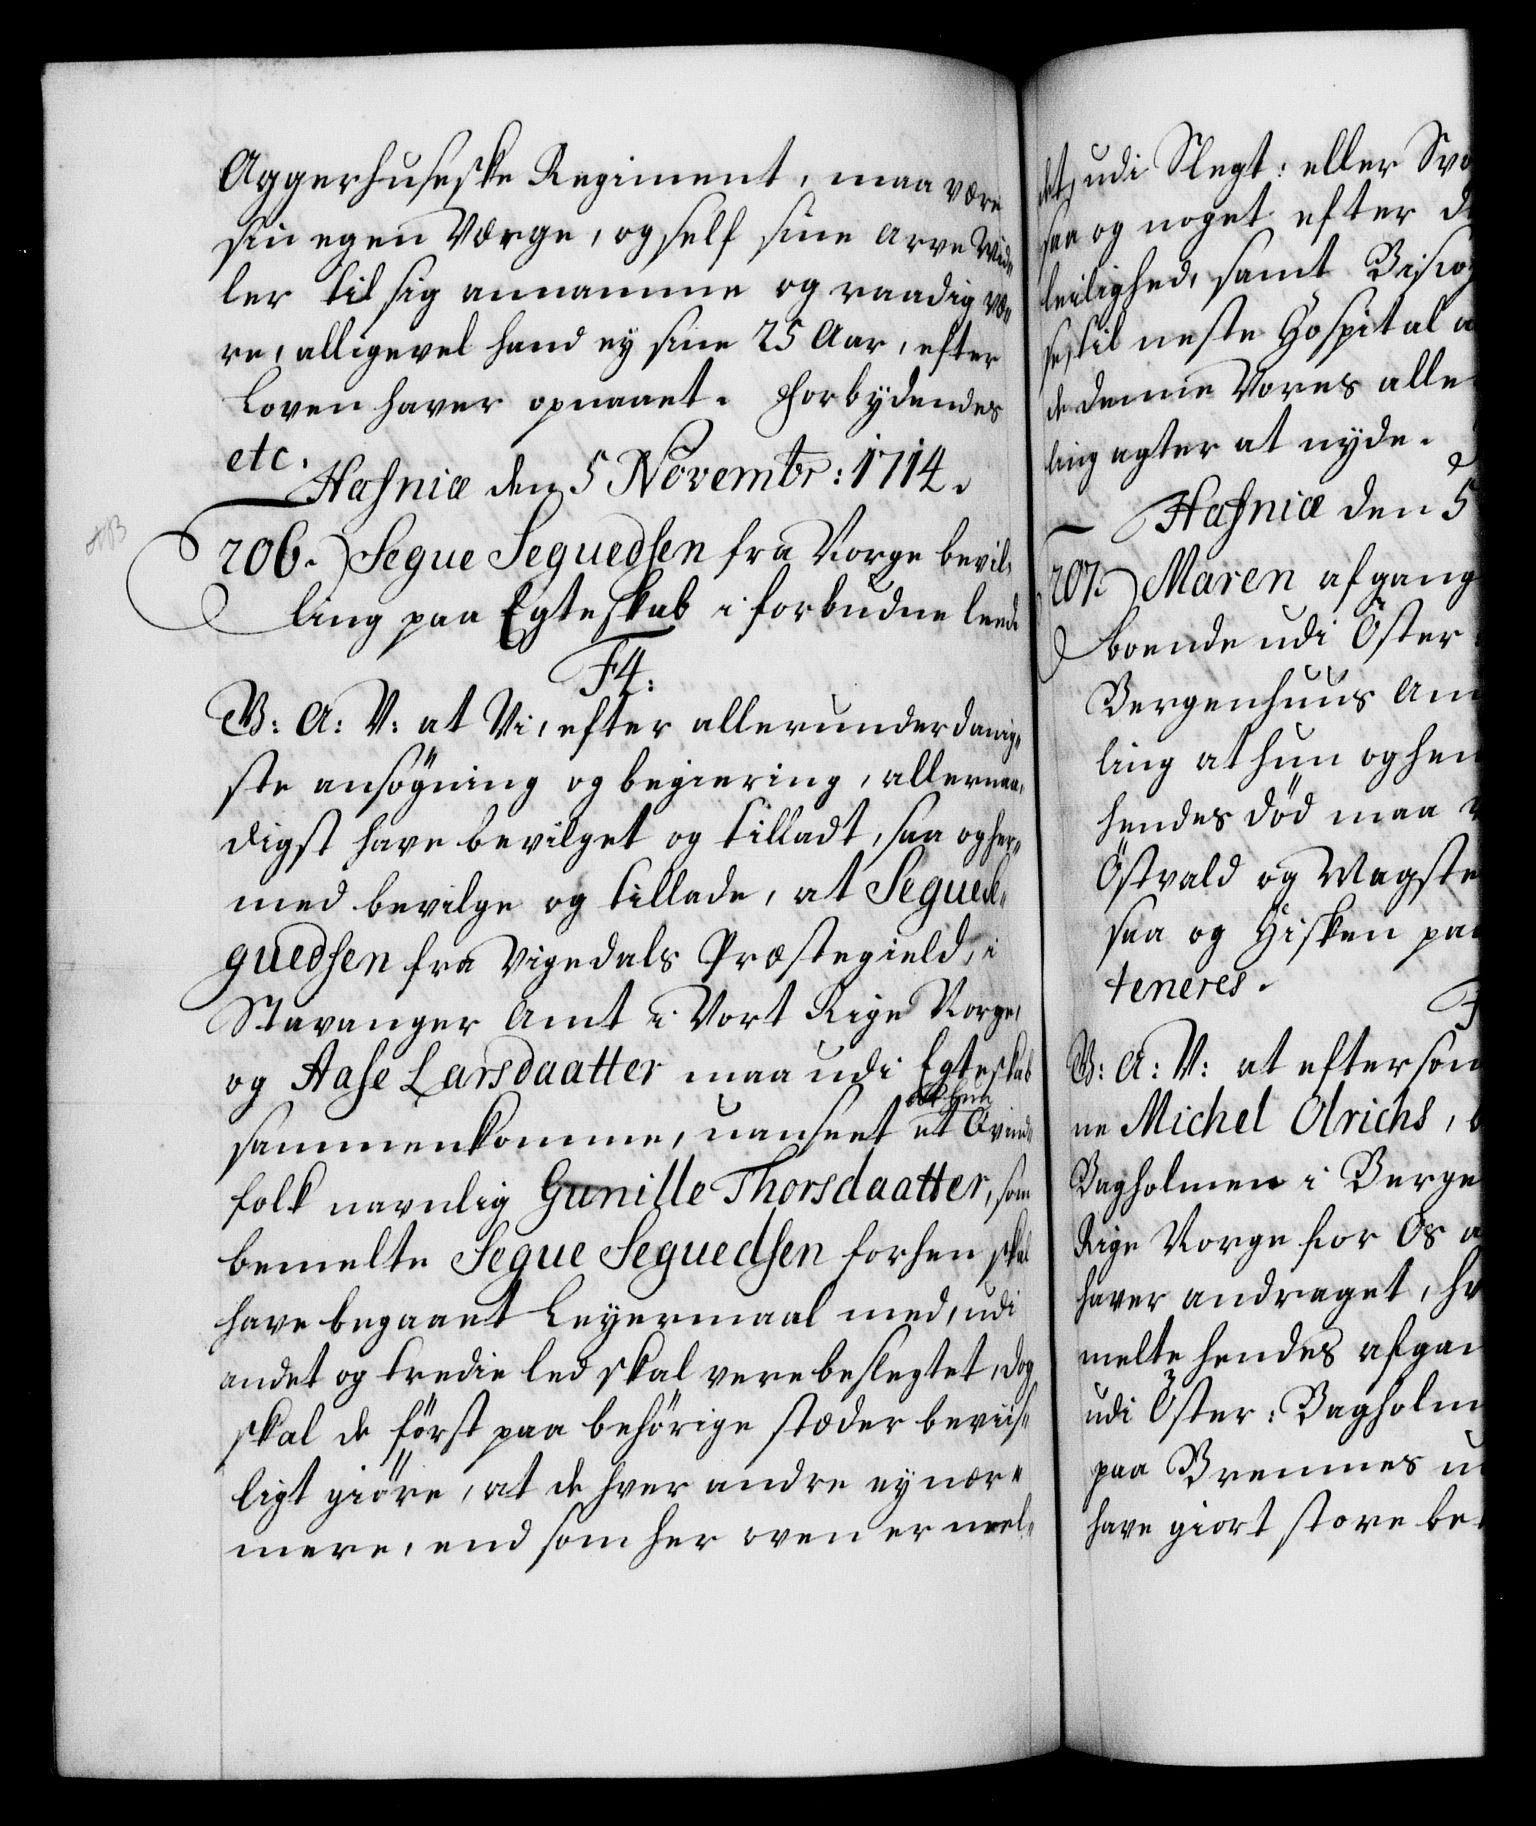 Aggerhuseske Regiment, maa være
sin egen Værge, og self sine Arve Mid-
ler til sig annamme og raadig væ-
re, alligevel hand ey sine 25 Aar, efter
Loven haver opnaaet. Forbydendes
etc.
Hafniæ den 5 Novembr: 1714.
206.) Segue Seguedsen fra Norge bevil-
ling paa Egteskab i forbudne leede
F4:
V: A: V: at Vi, efter allerunderdanig-
ste ansögning og begiering, allernaa-
digst have bevilget og tilladt, saa og her-
med bevilge og tillade, at Segue Se-
guedsen fra Vigedals Præstegield, i
Stavanger Amt i Vort Rige Norge,
og Aase Larsdaatter maa udi Egteskab
sammenkomme, uanseet et Qvind-
folk navnlig Gunille Thorsdaatter, som
bemelte Segue Seguedsen forhen skal
have begaaet Leyermaal med, udi
andet og tredie led skal være beslegtet, dog
skal de först paa behörige stæder beviis-
ligt giöre, at de hver andre ey nær-
mere, end som her oven er meel-
det, udi Slegt: eller Svo
saa og noget efter d
leilighed, samt Bisco
til neste Hospital a
de denne Vores alle
ling agter at nyde.
Hafniæ den 5
207.) Maren afgang
boende udi Öster
Bergenhuus Am
ling at hun og hen
hendes död maa
Östvald og Magste
saa og Fisken paa
teneres.
F
V: A: V: at eftersom
ne Michel Olrichs, b
Bagholmen i Berge
Rige Norge for Os a
haver andraget, hv
melte hendes afgan
udi Öster: Bagholm
paa Bremnes u
have giort store be